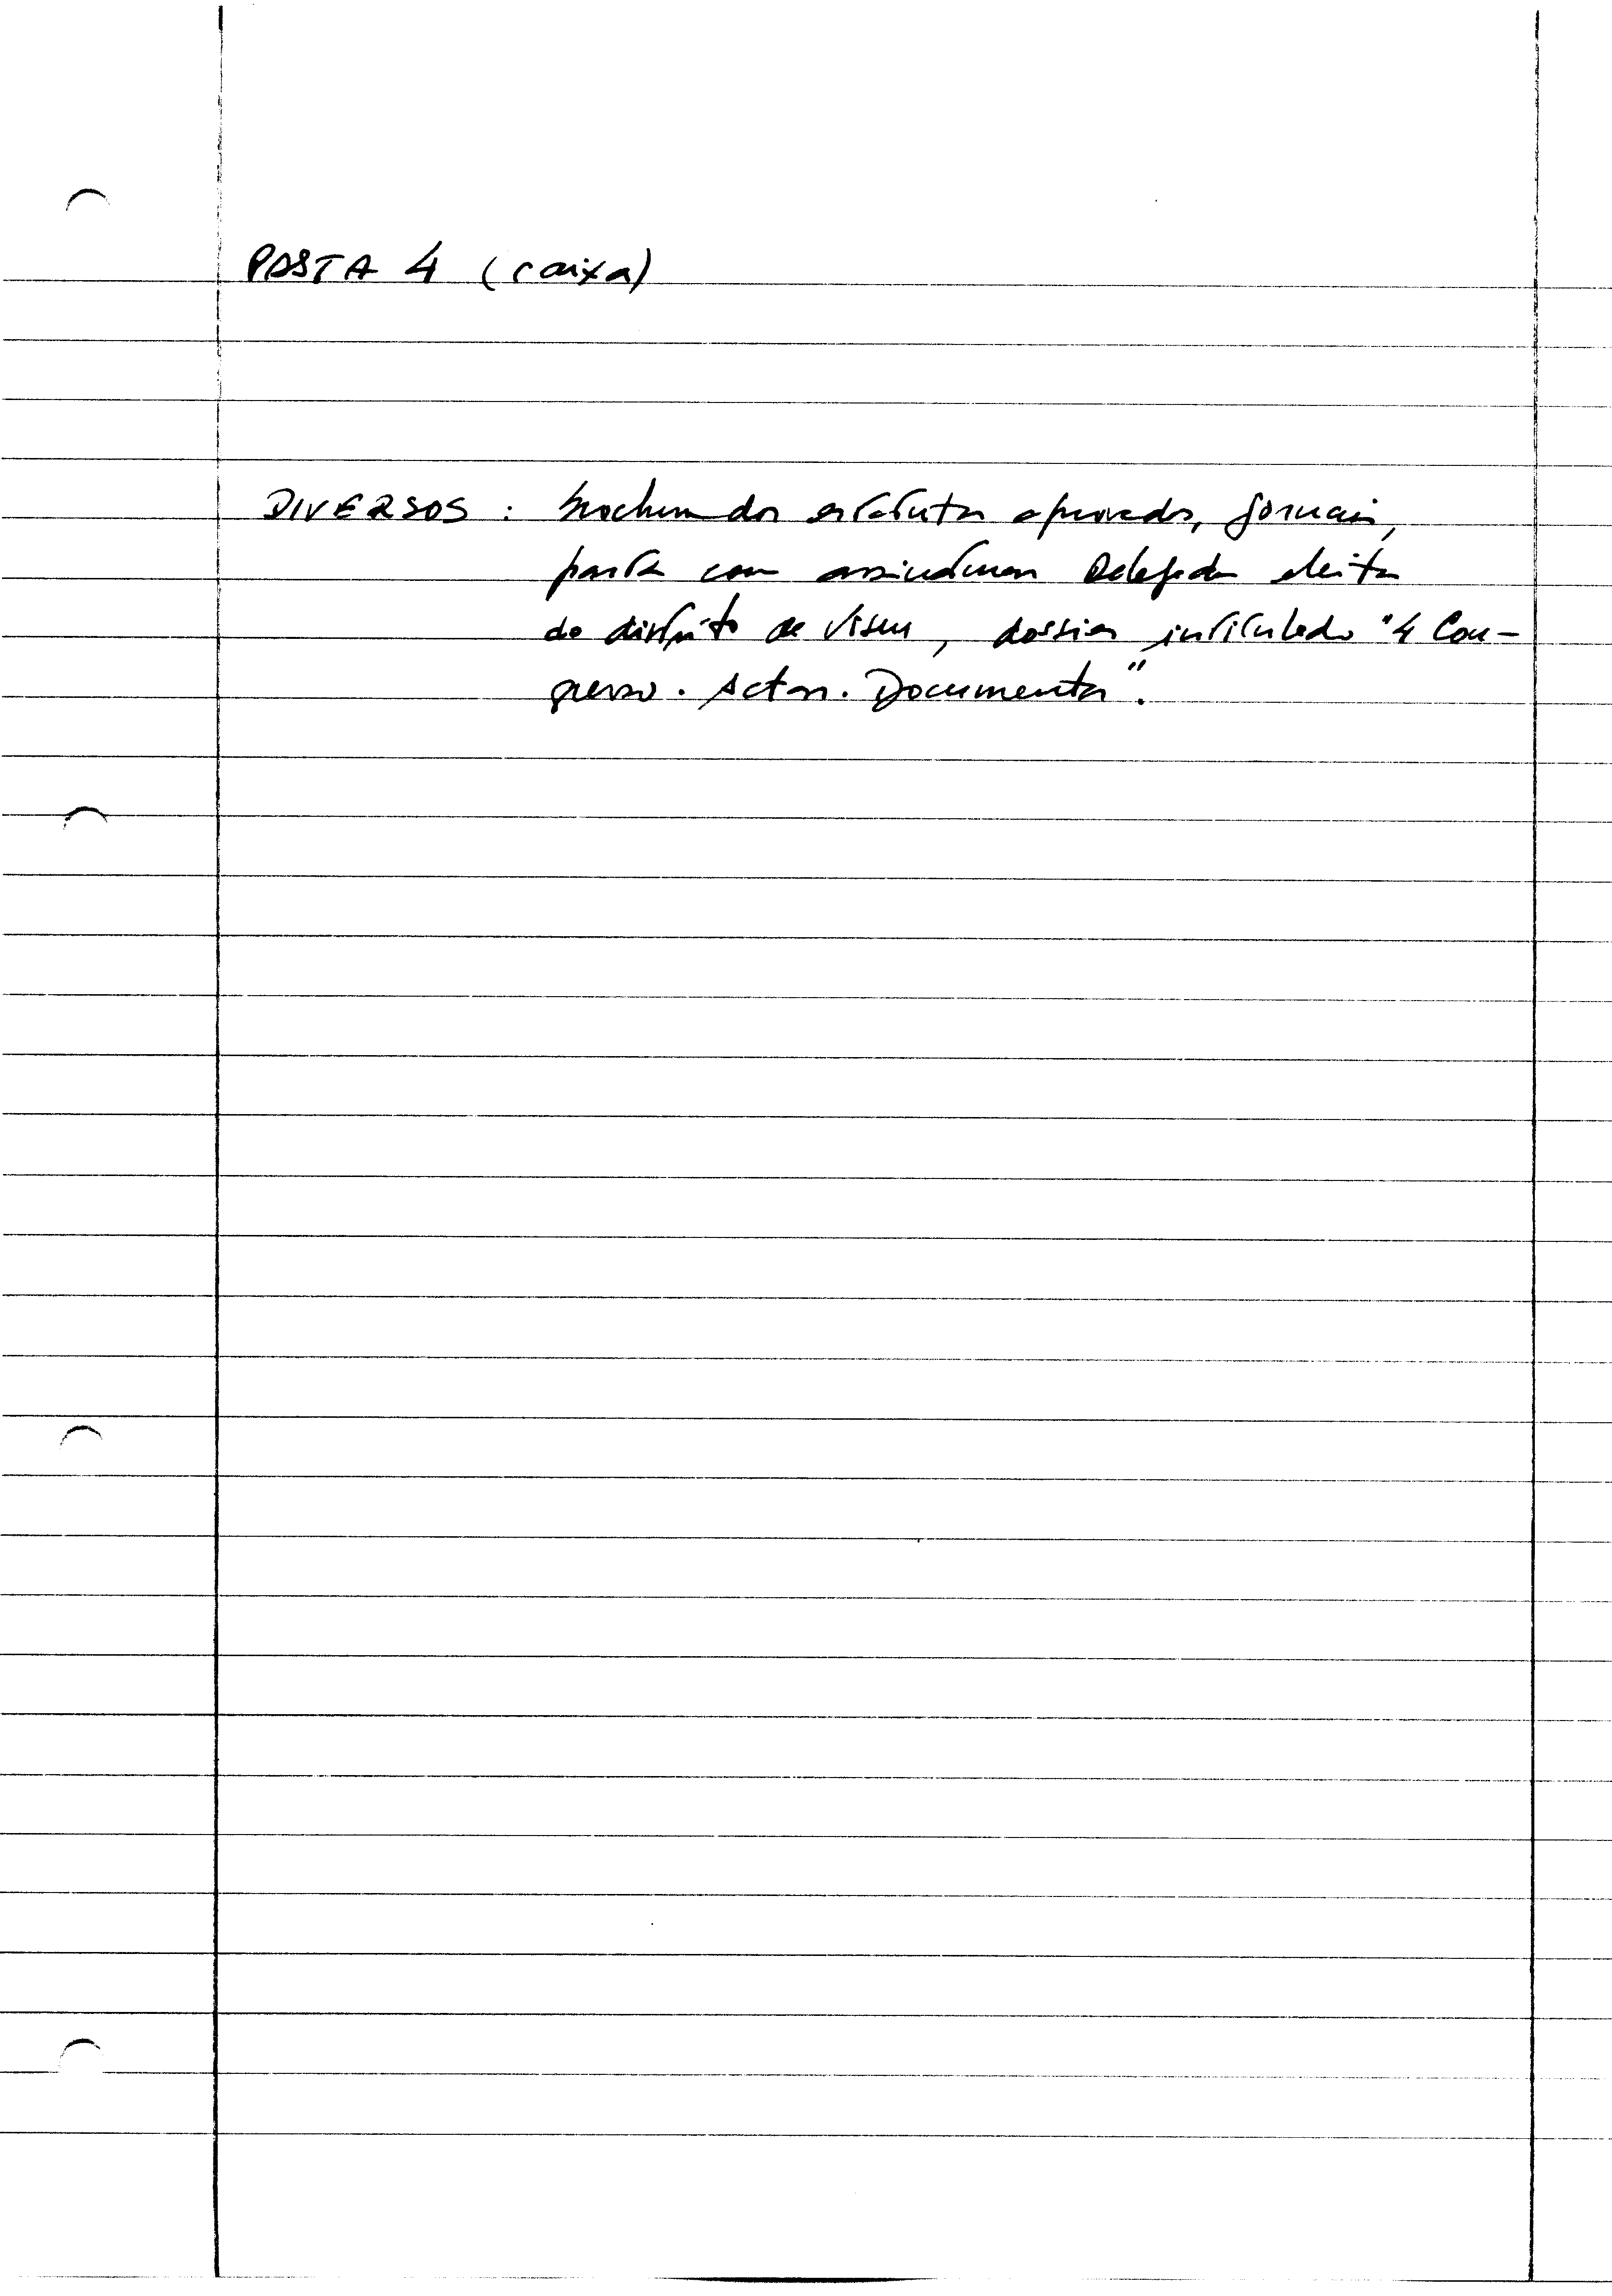 PASTA 4 (caixa)
DIVERSOS : brochura dos estatutos aprovados, jornais,
pasta com assinaturas Delegados eleitos
do distrito de Viseu, dossier intitulado "4 Con-
gresso. Actas. Documentos".